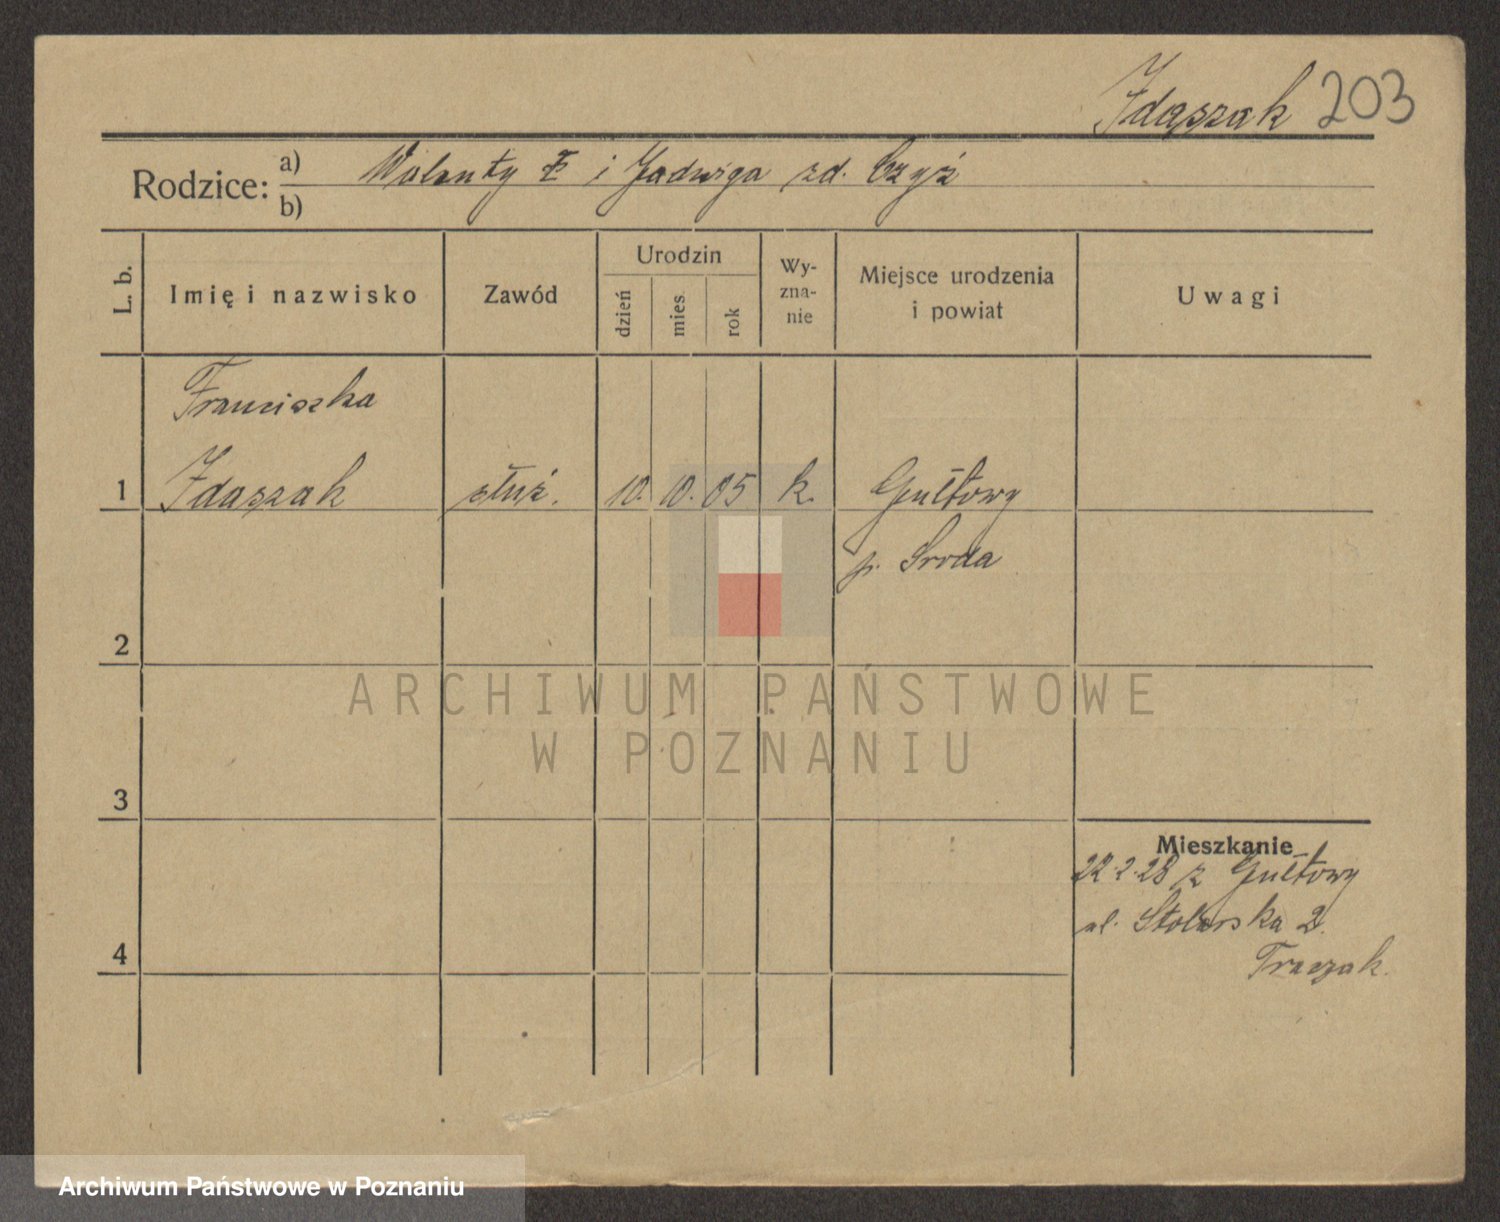 Idaszak 203
Rodzice: a) Walenty I i Jadwiga zd. Czyż
b)
L. b. Imię i nazwisko Zawód Urodzin dzień mies. rok Wy-zna-nie Miejsce urodzenia i powiat Uwagi
Franciszka
1 Idaszak służ. 10. 10. 05 k. Gułtowy
p. Środa
2
ARCHIWUM PAŃSTWOWE
W POZNANIU
3
Mieszkanie
22.2.28 z Gułtowy
ul. Stolarska 2.
4 Traczak.
Archiwum Państwowe w Poznaniu